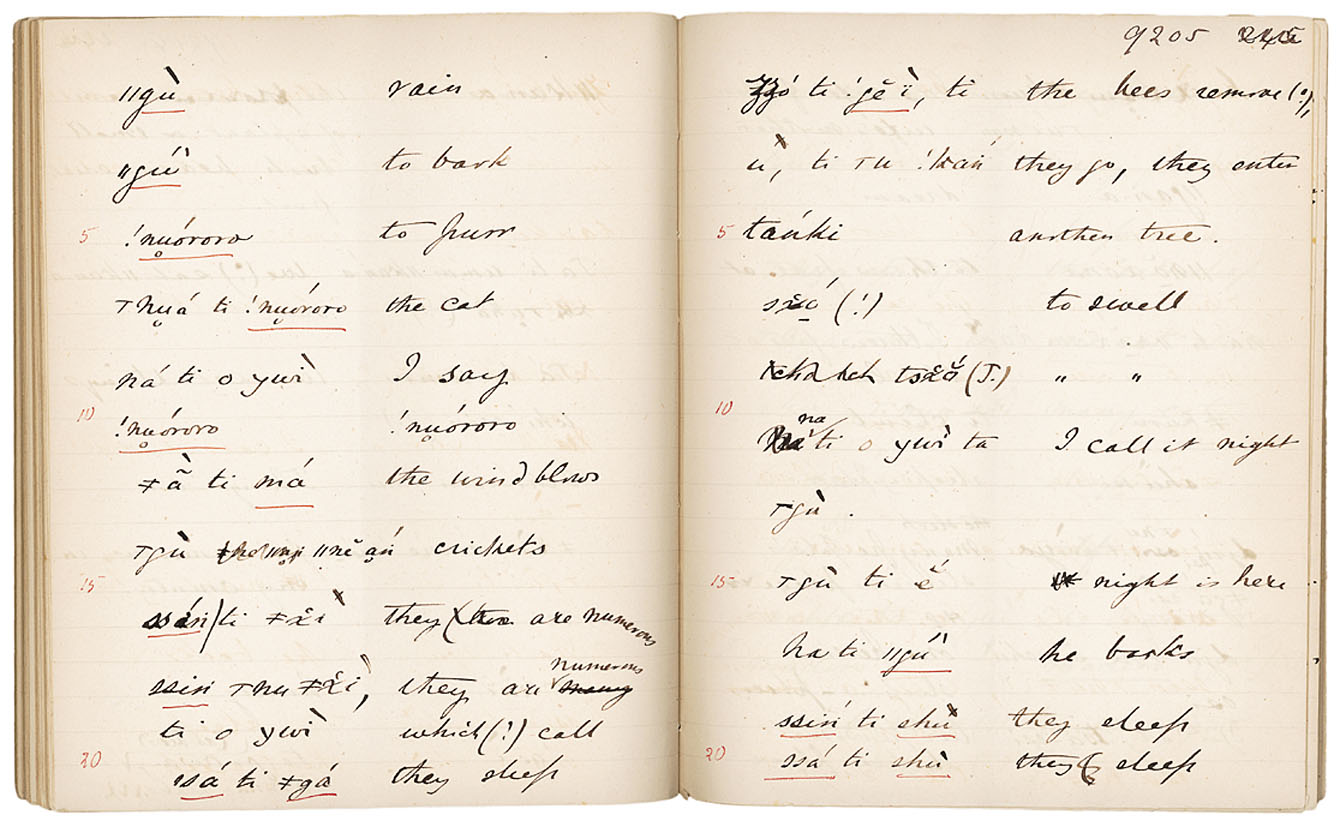 ǁgù rain
ǁgú to bark
5 !nu̯óroro to purr
ꞱnU̯á ti !nu̯óroro the cat
ná ti o ywì I say
10 !nu̯óroro !nu̯óroro
ǂã̀ ti má the wind blows
Ʇgù crickets
15 ssán ti they are numerous
ssin Ʇnu they are numerous
ti o ywì which (?) call
20 ssá ti ǂgá they sleep
9205
ti !gě ï, ti the bees remove (?),
ù, ti Ʇu !kań they go, they enter
5 taúki another tree.
(?) to swell
(T.) „ „
10 na ti o ywì ta I call it night
Ʇgù .
15 Ʇgù ti é night is here
ha ti ǁgú he barks
ssiń ti shù they sleep
20 ssá ti shù they sleep